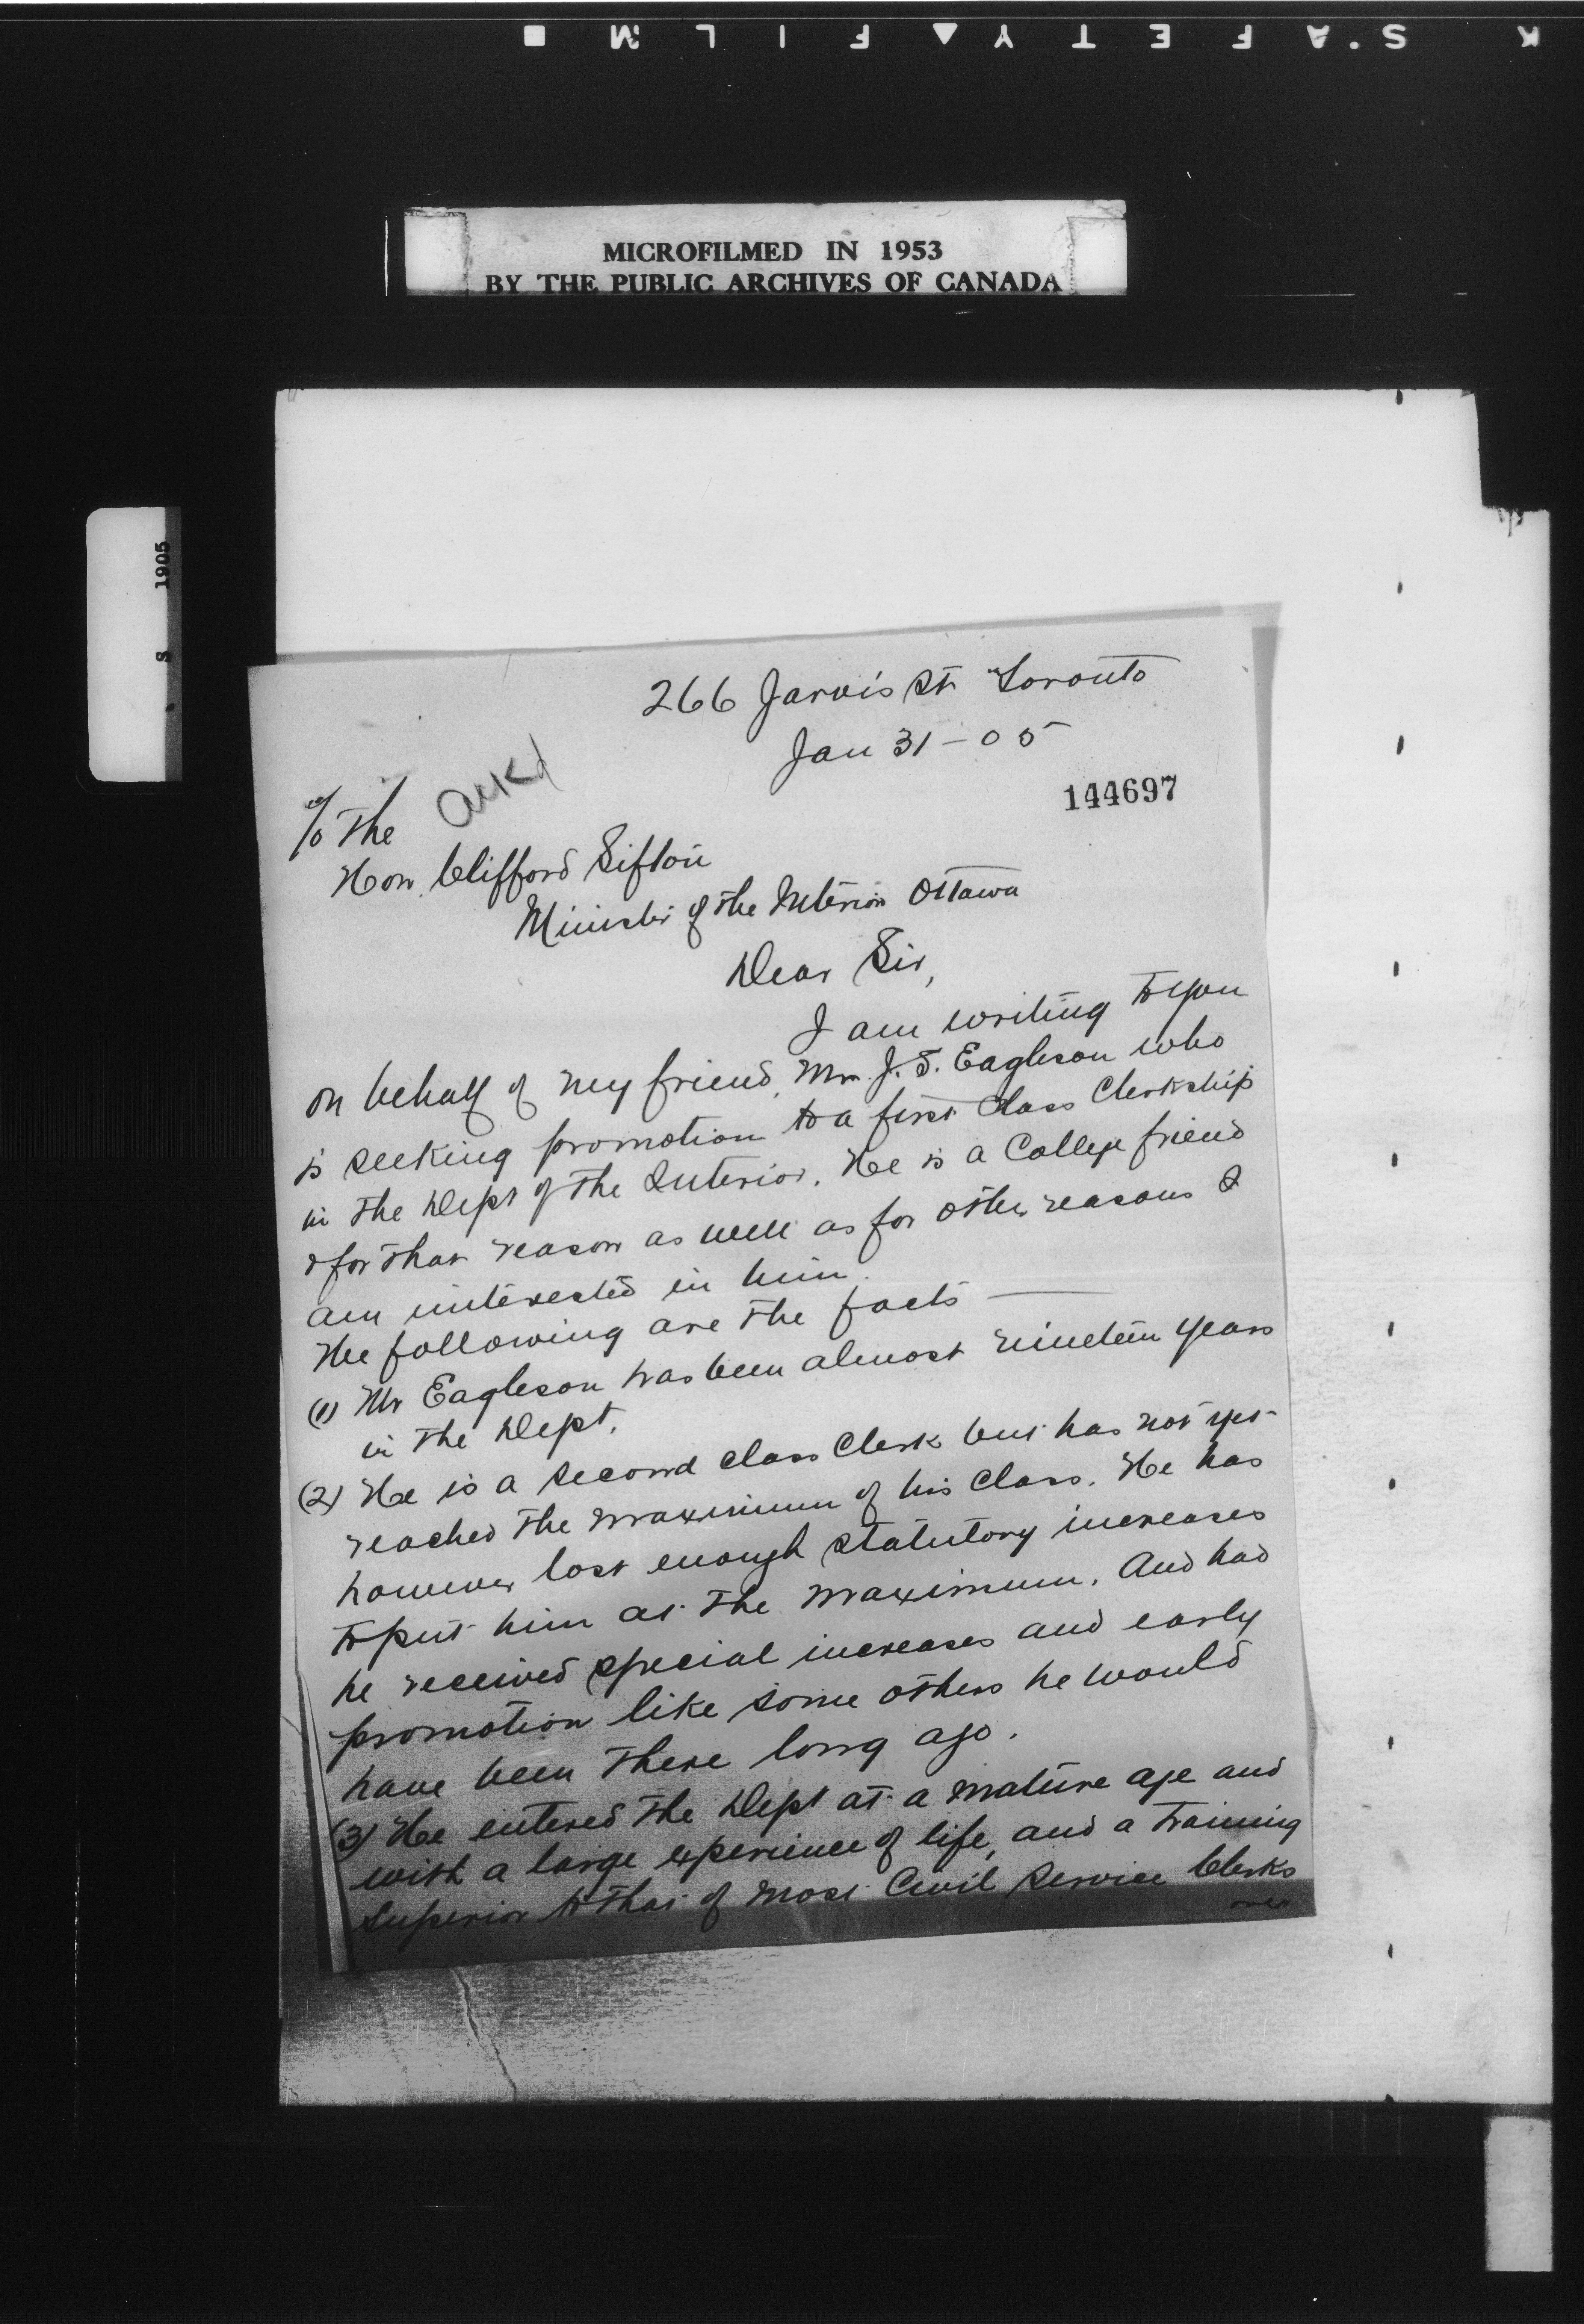 K S'A F E T Y ▲ F I L M ■
MICROFILMED IN 1953
BY THE PUBLIC ARCHIVES OF CANADA
S 1905
266 Jarvis St. Toronto
Jan 31 - 05
Ack'd
144697
To The
Hon. Clifford Sifton
Minister of the Interior Ottawa
Dear Sir,
I am writing to you
on behalf of my friend, Mr. J. S. Eagleson who
is seeking promotion to a first class Clerkship
in the Dept of the Interior. He is a College friend
& for that reason as well as for other reasons I
am interested in him.
The following are the facts —
(1) Mr Eagleson has been almost nineteen years
in the Dept.
(2) He is a second class Clerk but has not yet
reached the maximum of his class. He has
however lost enough statutory increases
to put him at the maximum. And had
he received special increases and early
promotion like some others he would
have been there long ago.
(3) He entered the Dept at a mature age and
with a large experience of life, and a training
superior to that of most Civil Service Clerks
over